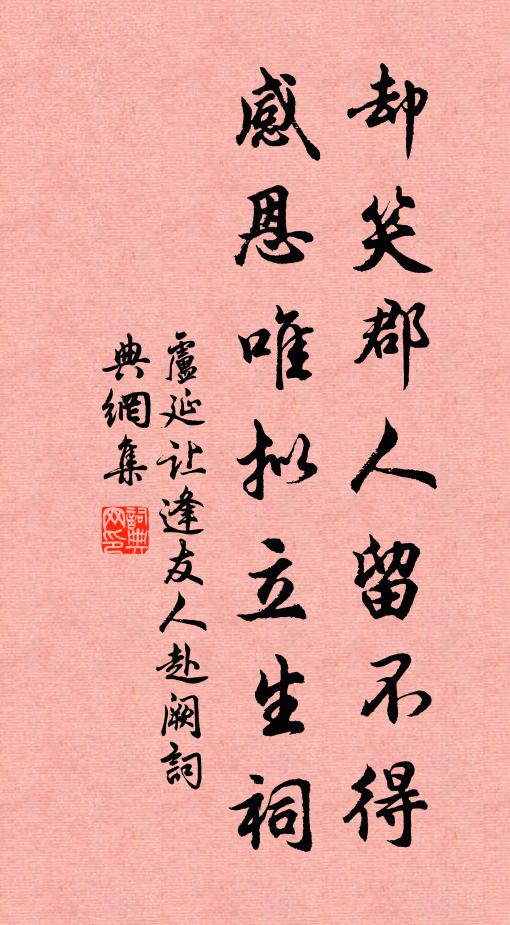 却笑郡人留不得
感恩唯拟立生祠
盧延让逢友人赴阙詞
典網集
詞典网印